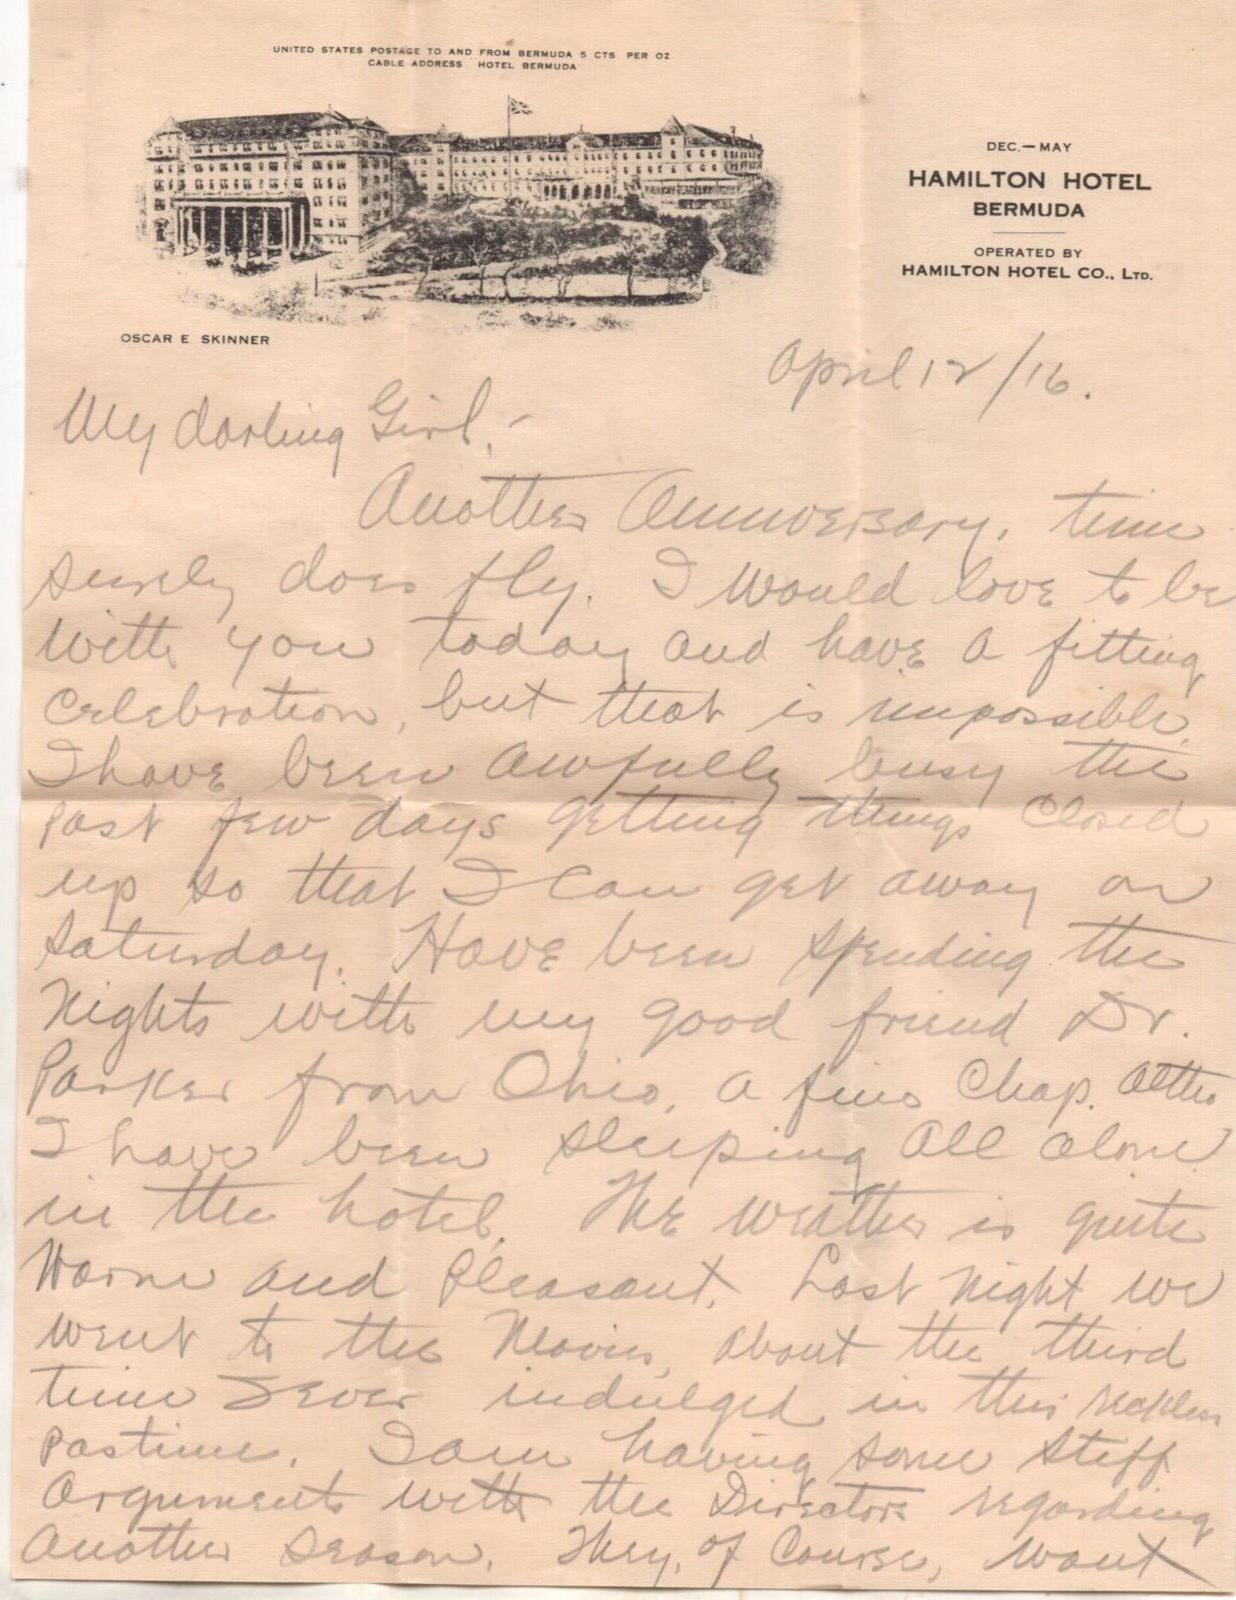 UNITED STATES POSTAGE TO AND FROM BERMUDA 5 CTS PER OZ
CABLE ADDRESS HOTEL BERMUDA
DEC.—MAY
HAMILTON HOTEL
BERMUDA
OPERATED BY
HAMILTON HOTEL CO., LTD.
OSCAR E SKINNER
April 12/16.
My darling Girl,-
Another Anniversary, time
surely does fly. I would love to be
with you today and have a fitting
celebration, but that is impossible.
I have been awfully busy the
past few days getting things closed
up so that I can get away on
Saturday. Have been spending the
Nights with my good friend Dr.
Parker from Ohio, a fine Chap. Altho
I have been sleeping all alone
in the hotel. The weather is quite
Warm and pleasant. Last night we
went to the Movies, about the third
time I ever indulged in this reckless
pastime. I am having some stiff
Arguments with the Directors regarding
Another season. They, of Course, want